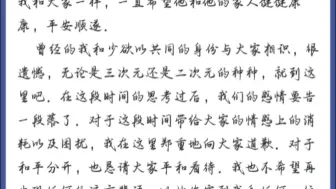 我和大家一样，一直希望他和他的家人健健康
康，平安顺遂．
曾经的我和少欲以共同的身份与大家相识，很
遗憾，无论是三次元还是二次元的种种，就到这
里吧．在这段时间的思考过后，我们的感情要告
一段落了．对于这段时间带给大家的情感上的消
耗以及困扰，我在这里郑重地向大家道歉．对于
和平分开，也恳请大家平和看待．我也不希望再